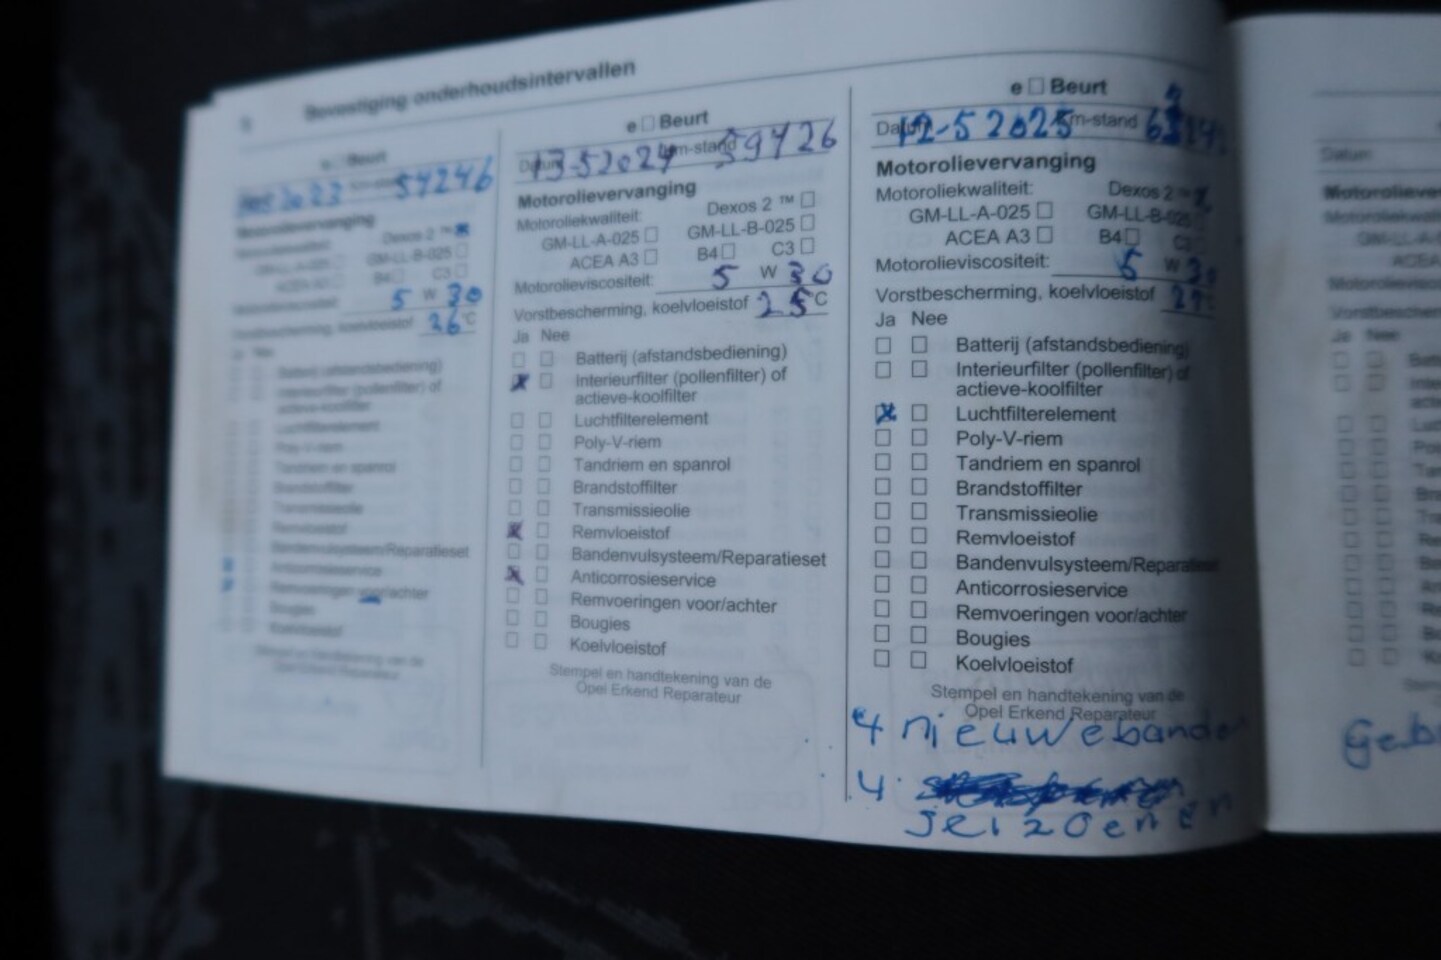 Bevestiging onderhoudsintervallen
e □ Beurt
2023 54246
Dexos 2 ™
GM-LL-B-025 □
B4 □ C3 □
5 W 30
Vorstbescherming, koelvloeistof 26 °C
Batterij (afstandsbediening)
Interieurfilter (pollenfilter) of
actieve-koolfilter
Luchtfilterelement
Poly-V-riem
Tandriem en spanrol
Brandstoffilter
Transmissieolie
Remvloeistof
Bandenvulsysteem/Reparatieset
Anticorrosieservice
Remvoeringen voor/achter
Bougies
Koelvloeistof
Stempel en handtekening van de
Opel Erkend Reparateur
e □ Beurt
Datum 13-52024 km-stand 59426
Motorolievervanging
Motoroliekwaliteit: Dexos 2 ™ □
GM-LL-A-025 □ GM-LL-B-025 □
ACEA A3 □ B4 □ C3 □
Motorolieviscositeit: 5 W 30
Vorstbescherming, koelvloeistof 25 °C
Ja Nee
Batterij (afstandsbediening)
Interieurfilter (pollenfilter) of
actieve-koolfilter
Luchtfilterelement
Poly-V-riem
Tandriem en spanrol
Brandstoffilter
Transmissieolie
Remvloeistof
Bandenvulsysteem/Reparatieset
Anticorrosieservice
Remvoeringen voor/achter
Bougies
Koelvloeistof
Stempel en handtekening van de
Opel Erkend Reparateur
e □ Beurt
Datum 12-5 2025 km-stand
Motorolievervanging
Motoroliekwaliteit: Dexos 2 ™
GM-LL-A-025 □ GM-LL-B-025
ACEA A3 □ B4 □ C3
Motorolieviscositeit: 5 W 30
Vorstbescherming, koelvloeistof
Ja Nee
Batterij (afstandsbediening)
Interieurfilter (pollenfilter) of
actieve-koolfilter
Luchtfilterelement
Poly-V-riem
Tandriem en spanrol
Brandstoffilter
Transmissieolie
Remvloeistof
Bandenvulsysteem/Reparatieset
Anticorrosieservice
Remvoeringen voor/achter
Bougies
Koelvloeistof
Stempel en handtekening van de
Opel Erkend Reparateur
4 nieuwe banden
4
seizoenen
Datum
Ja Nee